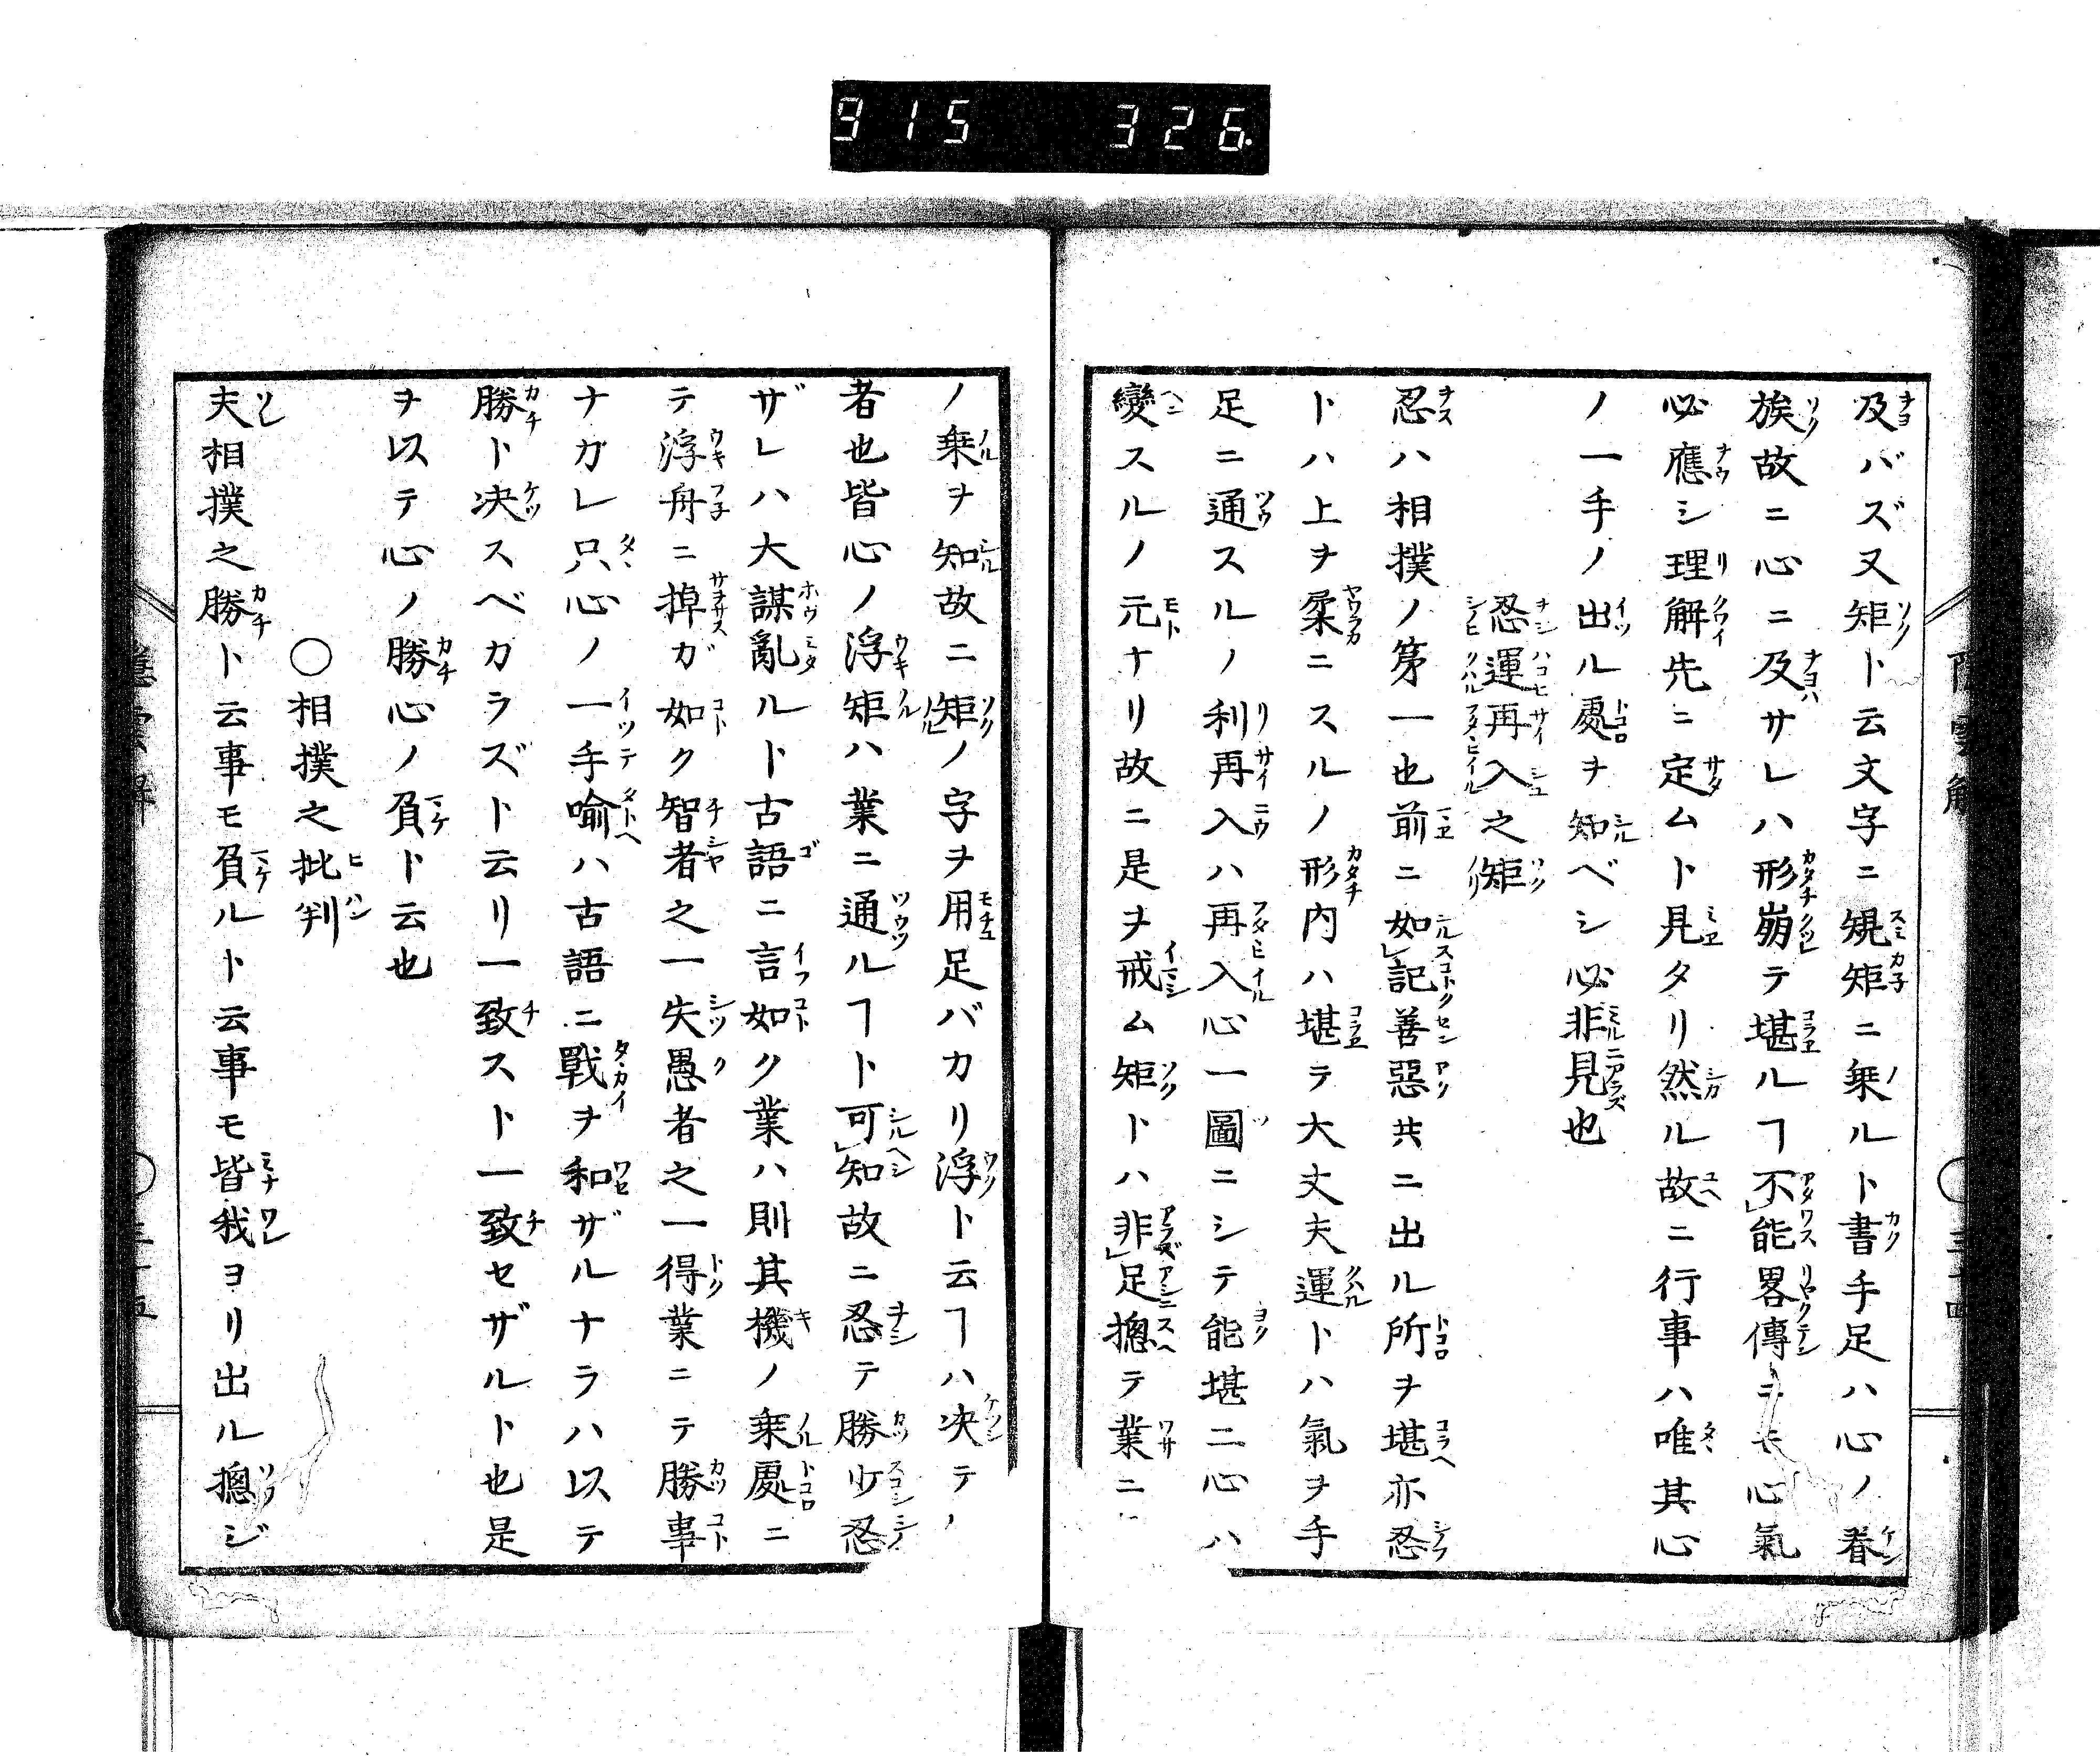 915 326
及バズ又矩ト云文字ニ規矩ニ乗ルト書手足ハ心ノ眷
族故ニ心ニ及サレハ形崩テ堪ルヿ不能畧傳ニモ心氣
必應シ理解先ニ定ムト見タリ然ル故ニ行事ハ唯其心
ノ一手ノ出ル處ヲ知ベシ必非見也
忍運再入之矩
忍ハ相撲ノ第一也前ニ如記善惡共ニ出ル所ヲ堪亦忍
トハ上ヲ柔ニスルノ形内ハ堪テ大丈夫運トハ氣ヲ手
足ニ通スルノ利再入ハ再入心一圖ニシテ能堪ニ心ハ
變スルノ元ナリ故ニ是ヲ戒ム矩トハ非足摠テ業ニ
ノ乗ヲ知故ニ矩ノ字ヲ用足バカリ浮ト云ヿハ决テノ
者也皆心ノ浮矩ハ業ニ通ルヿト可知故ニ忍テ勝少忍
ザレハ大謀亂ルト古語ニ言如ク業ハ則其機ノ乗處ニ
テ浮舟ニ掉ガ如ク智者之一失愚者之一得業ニテ勝事
ナガレ只心ノ一手喩ハ古語ニ戰ヲ和ザルナラハ以テ
勝ト决スベカラズト云リ一致スト一致セザルト也是
ヲ以テ心ノ勝心ノ負ト云也
○相撲之批判
夫相撲之勝ト云事モ負ルト云事モ皆我ヨリ出ル摠ジ